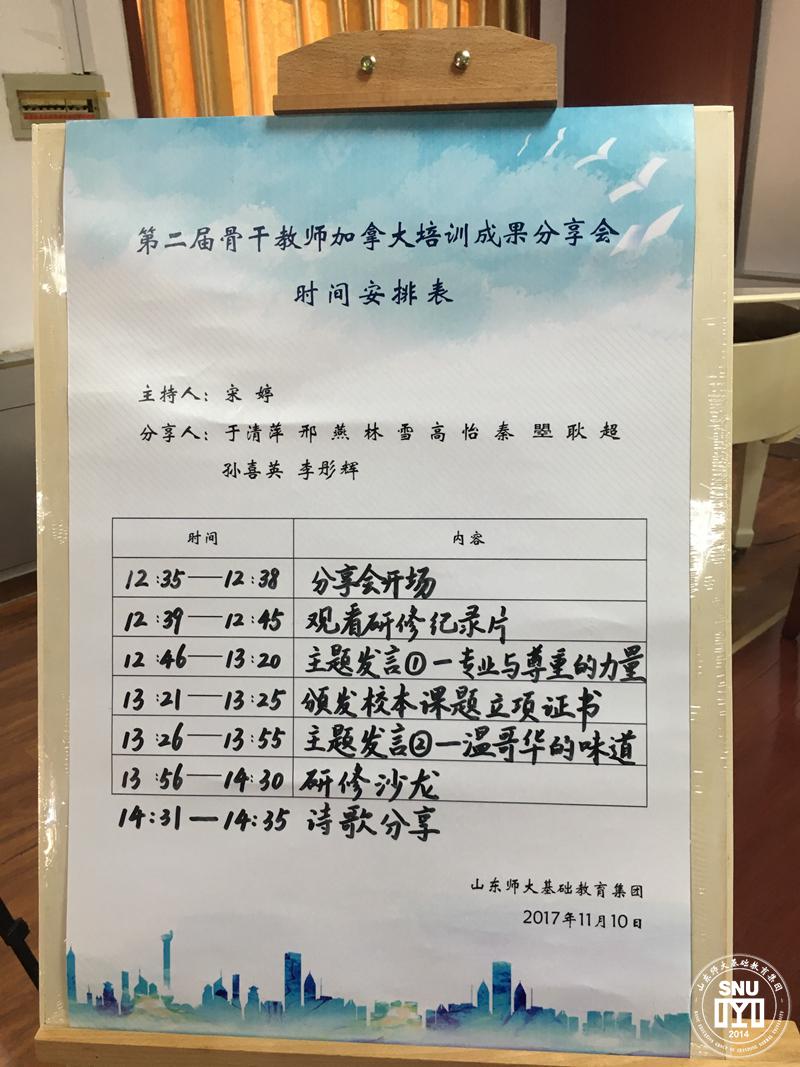 第二届骨干教师加拿大培训成果分享会
时间安排表
主持人：宋 婷
分享人：于清萍 邢 燕 林 雪 高 怡 秦 曌 耿 超
孙喜英 李彤辉
时间 内容
12:35——12:38 分享会开场
12:39——12:45 观看研修纪录片
12:46——13:20 主题发言①—专业与尊重的力量
13:21——13:25 颁发校本课题立项证书
13:26——13:55 主题发言②—温哥华的味道
13:56——14:30 研修沙龙
14:31—14:35 诗歌分享
山东师大基础教育集团
2017年11月10日
山东师大基础教育集团
SNU
2014